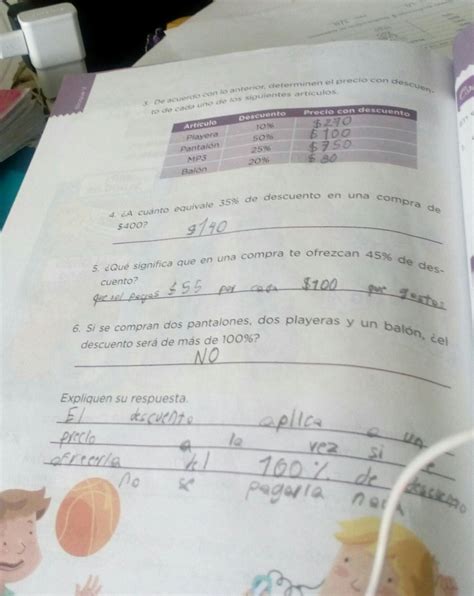 3. De acuerdo con lo anterior, determinen el precio con descuen-
to de cada uno de los siguientes artículos.
Artículo Descuento Precio con descuento
Playera 10%
Pantalón 50% $ 100
MP3 25% $ 750
Balón 20% $ 80
4. ¿A cuánto equivale 35% de descuento en una compra de
$400?
5. ¿Qué significa que en una compra te ofrezcan 45% de des-
cuento?
$55 por cada $100 que gastes
6. Si se compran dos pantalones, dos playeras y un balón, ¿el
descuento será de más de 100%?
NO
Expliquen su respuesta.
El descuento aplica a un
precio a la vez si se
ofreería del 100% de descuento
no se pagaria nada